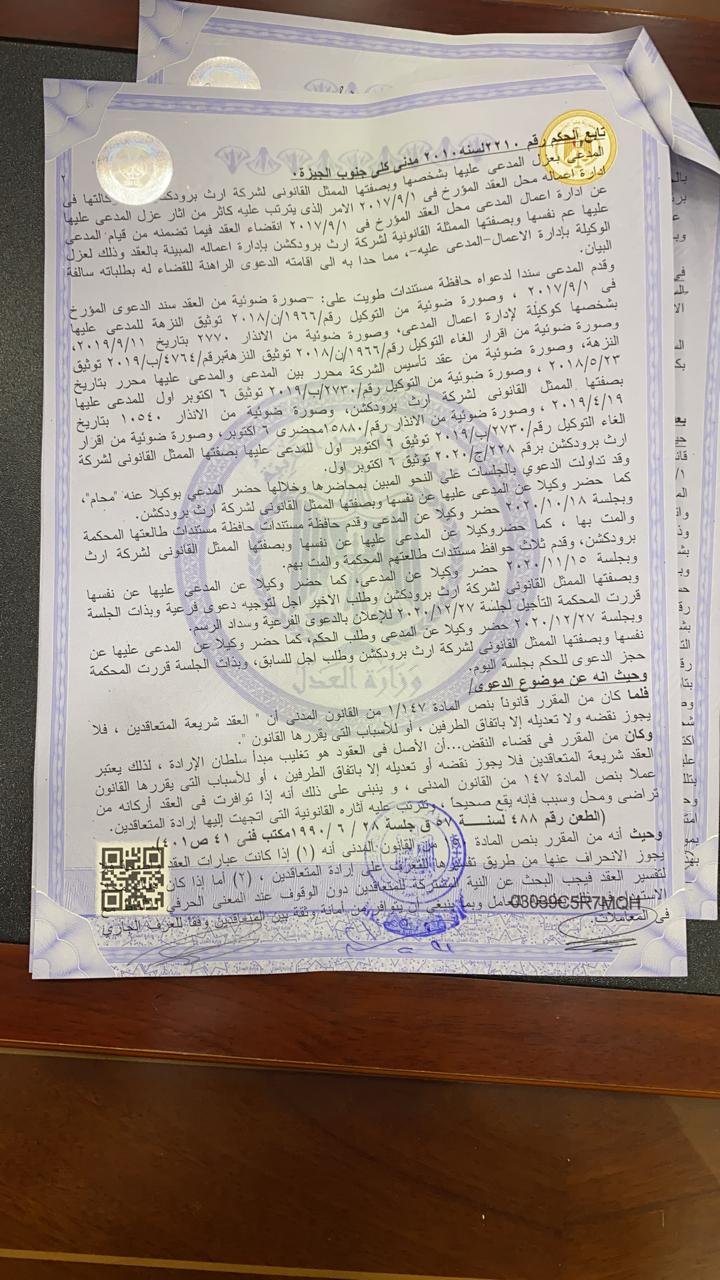 تابع الحكم رقم ٢٢١٠لسنه٢٠١٠ مدنى كلى جنوب الجيزة.
٢
المدعى بعزل المدعى عليها بشخصها وبصفتها الممثل القانونى لشركة ارث برودكشن
ادارة اعماله محل العقد المؤرخ فى ٢٠١٧/٩/١ الامر الذى يترتب عليه كاثر من اثار عزل المدعى عليها
عن ادارة اعمال المدعى محل العقد المؤرخ فى ٢٠١٧/٩/١ انقضاء العقد فيما تضمنه من قيام المدعى
عليها عم نفسها وبصفتها الممثلة القانونية لشركة ارث برودكشن بإدارة اعماله المبينة بالعقد وذلك لعزل
الوكيلة بإدارة الاعمال-المدعى عليه-، مما حدا به الى اقامته الدعوى الراهنة للقضاء له بطلباته سالفة
البيان.
وقدم المدعى سندا لدعواه حافظة مستندات طويت على: -صورة ضوئية من العقد سند الدعوى المؤرخ
فى ٢٠١٧/٩/١ ، وصورة ضوئية من التوكيل رقم/١٩٦٦/ن/٢٠١٨ توثيق النزهة للمدعى عليها
بشخصها كوكيلة لإدارة اعمال المدعى، وصورة ضوئية من الانذار ٢٧٧٠ بتاريخ ٢٠١٩/٩/١١،
وصورة ضوئية من اقرار الغاء التوكيل رقم/١٩٦٦/ن/٢٠١٨ توثيق النزهةبرقم/٤٧٦٤/ب/٢٠١٩ توثيق
النزهة، وصورة ضوئية من عقد تأسيس الشركة محرر بين المدعى والمدعى عليها محرر بتاريخ
٢٠١٨/٥/٢٣ ، وصورة ضوئية من التوكيل رقم/٢٧٣٠/ب/٢٠١٩ توثيق ٦ اكتوبر اول للمدعى عليها
بصفتها الممثل القانونى لشركة ارث برودكشن، وصورة ضوئية من الانذار ١٠٥٤٠ بتاريخ
٢٠١٩/٤/١٩ ، وصورة ضوئية من الانذار رقم/١٥٨٨٠محضرى ٦ اكتوبر، وصورة ضوئية من اقرار
الغاء التوكيل رقم/٢٧٣٠/ب/٢٠١٩ توثيق ٦ اكتوبر اول للمدعى عليها بصفتها الممثل القانونى لشركة
ارث برودكشن برقم ٢٢٨/ج/٢٠٢٠ توثيق ٦ اكتوبر اول.
وقد تداولت الدعوي بالجلسات علي النحو المبين بمحاضرها وخلالها حضر المدعي بوكيلا عنه "محام"،
كما حضر وكيلا عن المدعى عليها عن نفسها وبصفتها الممثل القانونى لشركة ارث برودكشن.
وبجلسة ٢٠٢٠/١٠/١٨ حضر وكيلا عن المدعى وقدم حافظة مستندات حافظة مستندات طالعتها المحكمة
والمت بها ، كما حضروكيلا عن المدعى عليها عن نفسها وبصفتها الممثل القانونى لشركة ارث
برودكشن، وقدم ثلاث حوافظ مستندات طالعتهم المحكمة والمت بهم.
وبجلسة ٢٠٢٠/١١/١٥ حضر وكيلا عن المدعى، كما حضر وكيلا عن المدعى عليها عن نفسها
وبصفتها الممثل القانونى لشركة ارث برودكشن وطلب الاخير اجل لتوجيه دعوى فرعية وبذات الجلسة
قررت المحكمة التأجيل لجلسة ٢٠٢٠/١٢/٢٧ للإعلان بالدعوى الفرعية وسداد الرسم
وبجلسة ٢٠٢٠/١٢/٢٧ حضر وكيلا عن المدعى وطلب الحكم، كما حضر وكيلا عن المدعى عليها عن
نفسها وبصفتها الممثل القانونى لشركة ارث برودكشن وطلب اجل للسابق، وبذات الجلسة قررت المحكمة
حجز الدعوى للحكم بجلسة اليوم.
وحيث انه عن موضوع الدعوى/
فلما كان من المقرر قانوناً بنص المادة ١/١٤٧ من القانون المدنى أن " العقد شريعة المتعاقدين ، فلا
يجوز نقضه ولا تعديله إلا باتفاق الطرفين ، أو للأسباب التى يقررها القانون ".
وكان من المقرر فى قضاء النقض...أن الأصل في العقود هو تغليب مبدأ سلطان الإرادة ، لذلك يعتبر
العقد شريعة المتعاقدين فلا يجوز نقضه أو تعديله إلا باتفاق الطرفين ، أو للأسباب التي يقررها القانون
عملا بنص المادة ١٤٧ من القانون المدنى ، و ينبنى على ذلك أنه إذا توافرت فى العقد أركانه من
تراضى ومحل وسبب فإنه يقع صحيحاً ، وتترتب عليه آثاره القانونية التى اتجهت إليها إرادة المتعاقدين.
(الطعن رقم ٤٨٨ لسنـــة ٥٧ ق جلسة ٢٨ / ٦ / ١٩٩٠مكتب فنى ٤١ ص٤٠١)
وحيث أنه من المقرر بنص المادة من القانون المدنى أنه (١) إذا كانت عبارات العقد
يجوز الانحراف عنها من طريق تفسيرها للتعرف على إرادة المتعاقدين ، (٢) أما إذا كان
لتفسير العقد فيجب البحث عن النية المشتركة للمتعاقدين دون الوقوف عند المعنى الحرفي
التعامل وبما ينبغى أن يتوافر من أمانة وثقة بين المتعاقدين وفقاً للعرف الجاري
فى المعاملات.
03039C5R7MOH
وزارة العدل